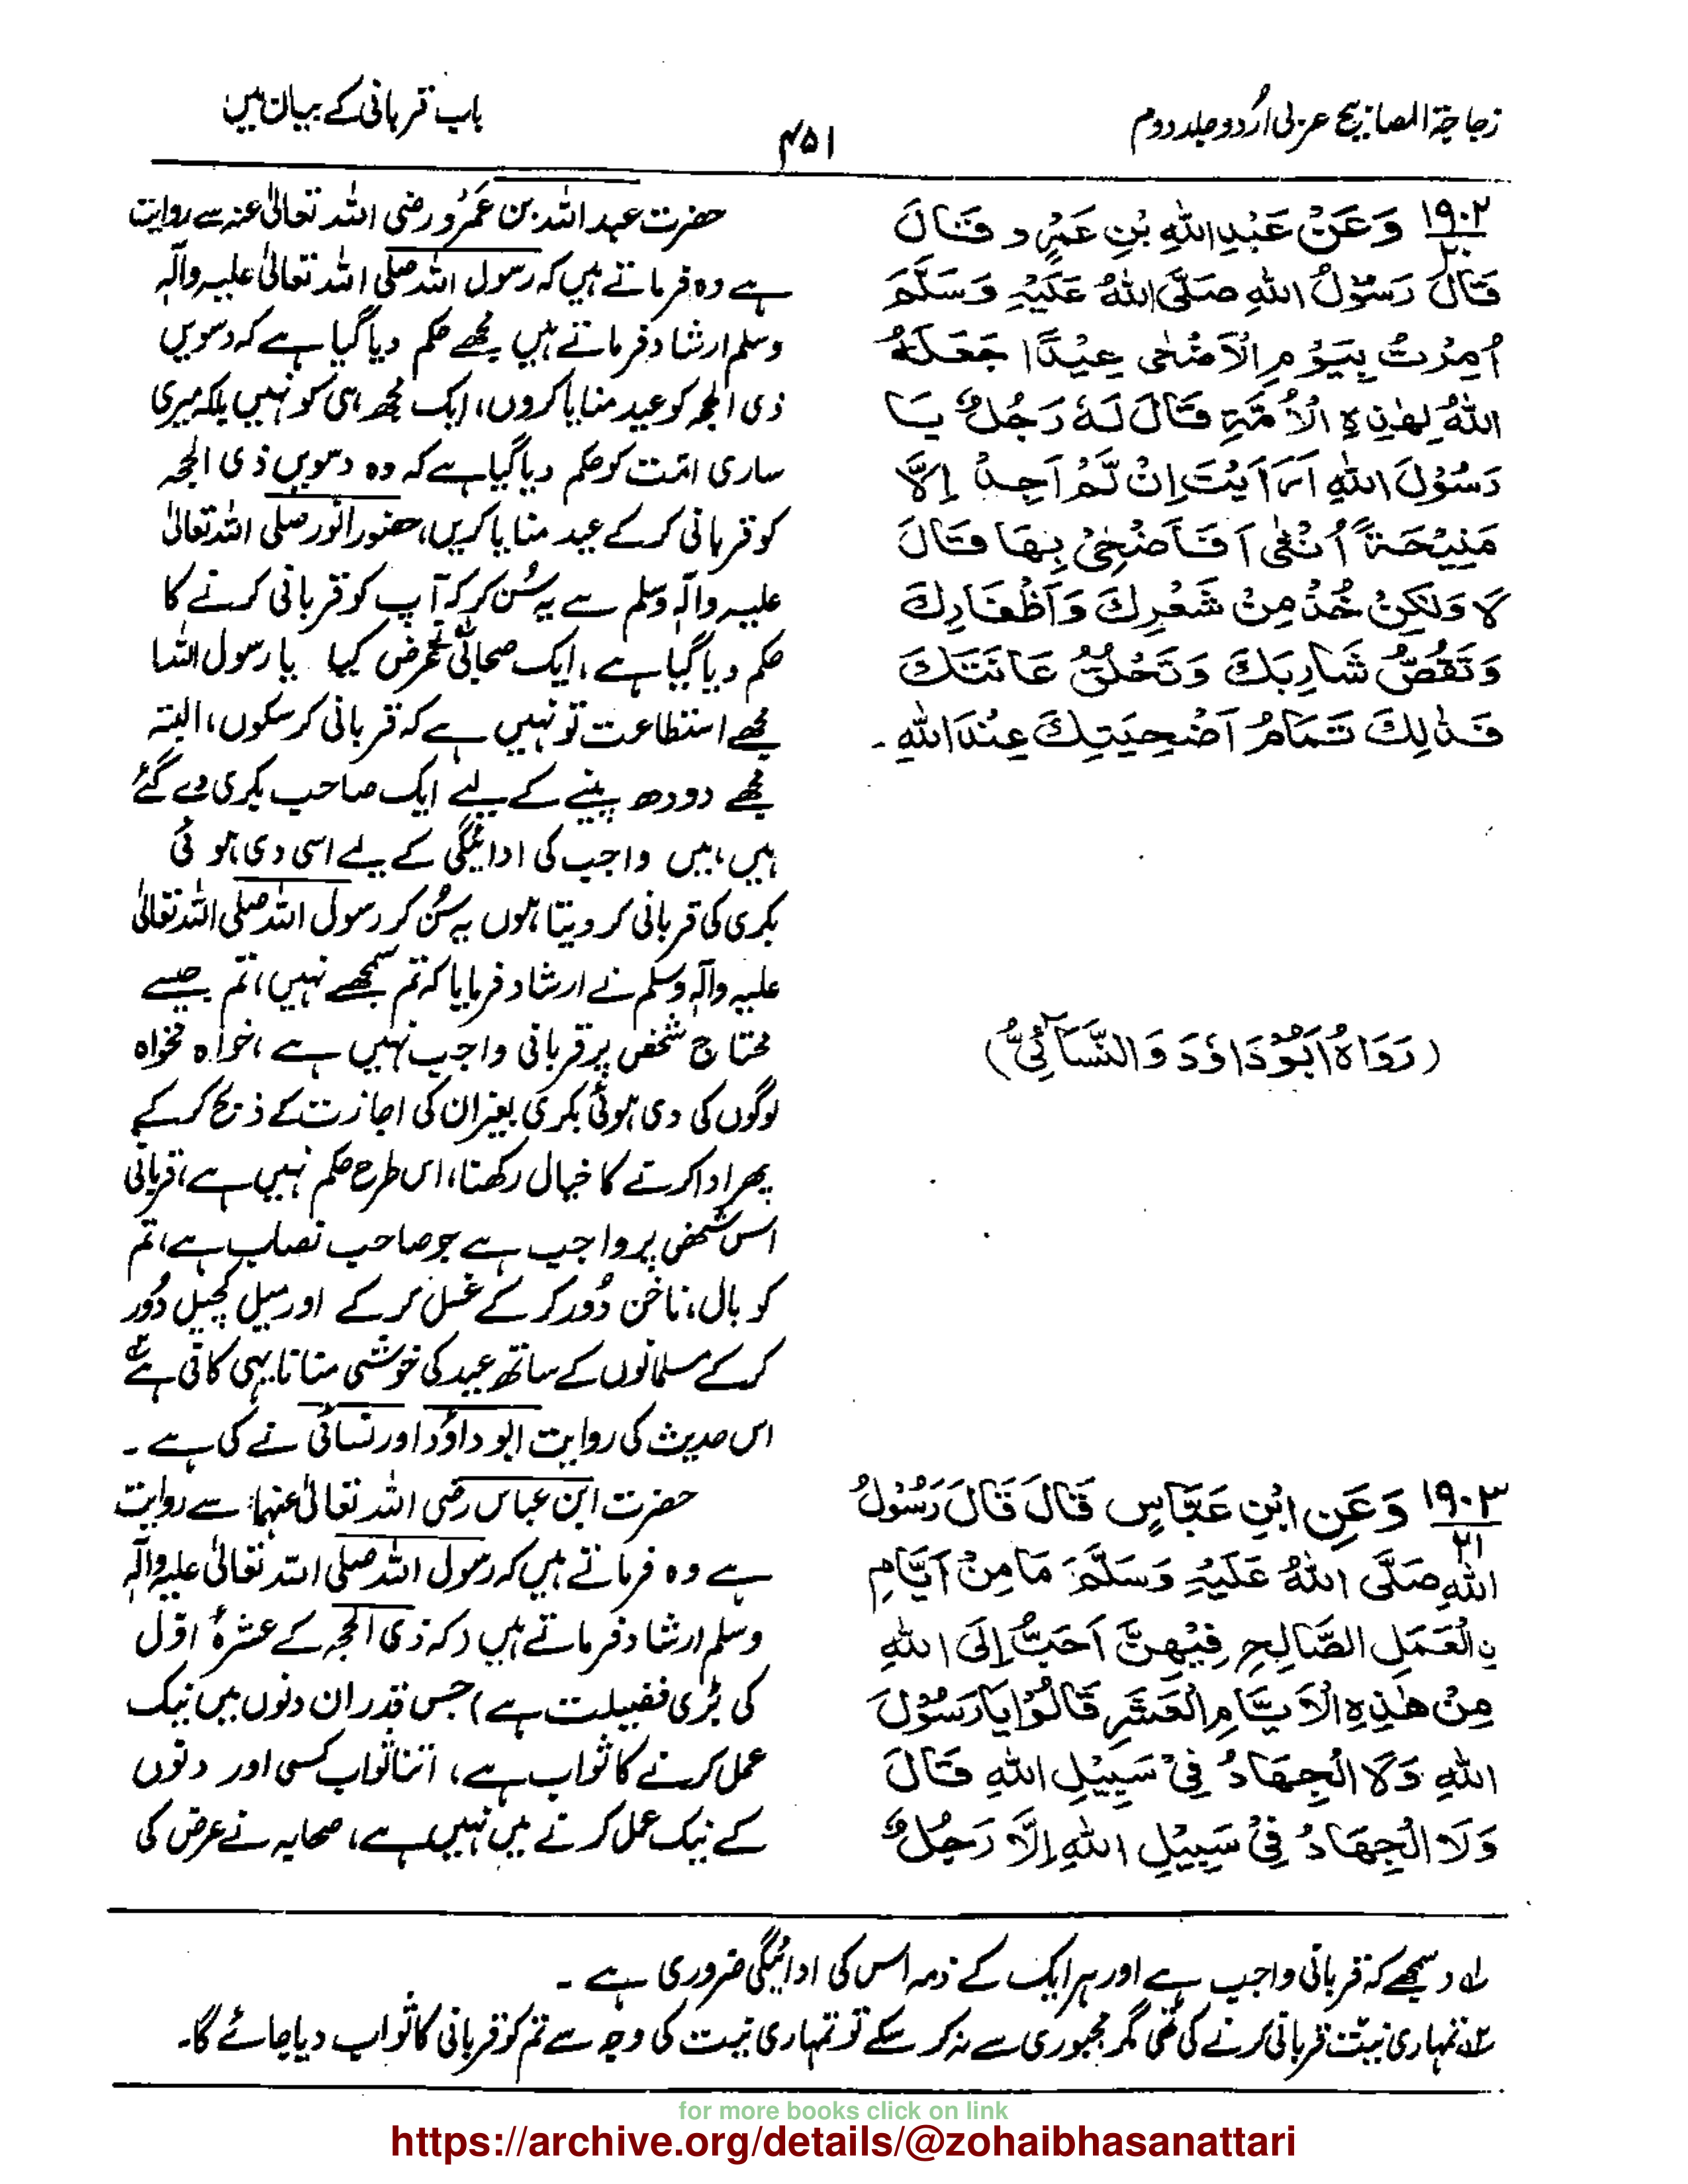 زجاجۃ المصابیح عربی اُردو جلد دوم
۴۵۱
باب قربانی کے بیان میں
۱۹۰۲
۲۰
وَعَنْ عَبْدِ اللهِ بْنِ عَمْرٍو قَالَ
قَالَ رَسُوْلُ اللهِ صَلَّى اللهُ عَلَيْهِ وَسَلَّمَ
اُمِرْتُ بِيَوْمِ الْاَضْحٰى عِيْدًا جَعَلَهُ
اللهُ لِهٰذِهِ الْاُمَّةِ قَالَ لَهٗ رَجُلٌ يَا
رَسُوْلَ اللهِ اَرَاَيْتَ اِنْ لَّمْ اَجِدْ اِلَّا
مَنِيْحَةً اُنْثٰى اَفَاُضَحِّيْ بِهَا قَالَ
لَا وَلٰكِنْ خُذْ مِنْ شَعْرِكَ وَاَظْفَارِكَ
وَتَقُصُّ شَارِبَكَ وَتَحْلُقُ عَانَتَكَ
فَذٰلِكَ تَمَامُ اُضْحِيَتِكَ عِنْدَ اللهِ۔
(رَوَاهُ اَبُوْ دَاوٗدَ وَالنَّسَآئِيُّ)
حضرت عبد اللہ بن عَمرُو رضی اللہ تعالیٰ عنہ سے روایت
ہے وہ فرماتے ہیں کہ رسول اللہ صلی اللہ تعالیٰ علیہ وآلہٖ
وسلم ارشاد فرماتے ہیں مجھے حکم دیا گیا ہے کہ دسویں
ذی الحجہ کو عید منایا کروں، ایک مجھ ہی کو نہیں بلکہ میری
ساری امّت کو حکم دیا گیا ہے کہ وہ دسویں ذی الحجہ
کو قربانی کر کے عید منایا کریں، حضور انور صلی اللہ تعالیٰ
علیہ وآلہٖ وسلم سے یہ سُن کر کہ آپ کو قربانی کرنے کا
حکم دیا گیا ہے، ایک صحابیؓ عرض کیا یا رسول اللہ!
مجھے استطاعت تو نہیں ہے کہ قربانی کر سکوں، البتہ
مجھے دودھ پینے کے لیے ایک صاحب بکری دے گئے
ہیں، میں واجب کی ادائیگی کے لیے اسی دی ہوئی
بکری کی قربانی کر دیتا ہوں یہ سُن کر رسول اللہ صلی اللہ تعالیٰ
علیہ وآلہٖ وسلم نے ارشاد فرمایا کہ تم سمجھے نہیں، تم جیسے
محتاج شخص پر قربانی واجب نہیں ہے، خواہ مخواہ
لوگوں کی دی ہوئی بکری بغیر ان کی اجازت کے ذبح کر کے
پھر ادا کرنے کا خیال رکھنا، اس طرح حکم نہیں ہے، قربانی
اس شخص پر واجب ہے جو صاحب نصاب ہے، تم
کو بال، ناخن دُور کر کے غسل کر کے اور میل کچیل دُور
کر کے مسلمانوں کے ساتھ عید کی خوشی منانا یہی کافی ہے
اس حدیث کی روایت ابو داؤد اور نسائی نے کی ہے۔
۱۹۰۳
۲۱
وَعَنِ ابْنِ عَبَّاسٍ قَالَ قَالَ رَسُوْلُ
اللهِ صَلَّى اللهُ عَلَيْهِ وَسَلَّمَ مَا مِنْ اَيَّامِ
نِ الْعَمَلِ الصَّالِحِ فِيْهِنَّ اَحَبُّ اِلَى اللهِ
مِنْ هٰذِهِ الْاَيَّامِ الْعَشْرِ قَالُوْا يَا رَسُوْلَ
اللهِ وَلَا الْجِهَادُ فِيْ سَبِيْلِ اللهِ قَالَ
وَلَا الْجِهَادُ فِيْ سَبِيْلِ اللهِ اِلَّا رَجُلٌ
حضرت ابن عباس رضی اللہ تعالیٰ عنہما سے روایت
ہے وہ فرماتے ہیں کہ رسول اللہ صلی اللہ تعالیٰ علیہ وآلہٖ
وسلم ارشاد فرماتے ہیں (کہ ذی الحجہ کے عشرۂ اوّل
کی بڑی فضیلت ہے) جس قدر ان دنوں میں نیک
عمل کرنے کا ثواب ہے، اتنا ثواب کسی اور دنوں
کے نیک عمل کرنے میں نہیں ہے، صحابہ نے عرض کی
؎۱ سمجھے کہ قربانی واجب ہے اور ہر ایک کے ذمہ اس کی ادائیگی ضروری ہے۔
؎۲ تمہاری نیّت قربانی کرنے کی تھی مگر مجبوری سے نہ کر سکے تو تمہاری نیت کی وجہ سے تم کو قربانی کا ثواب دیا جائے گا۔
for more books click on link
https://archive.org/details/@zohaibhasanattari